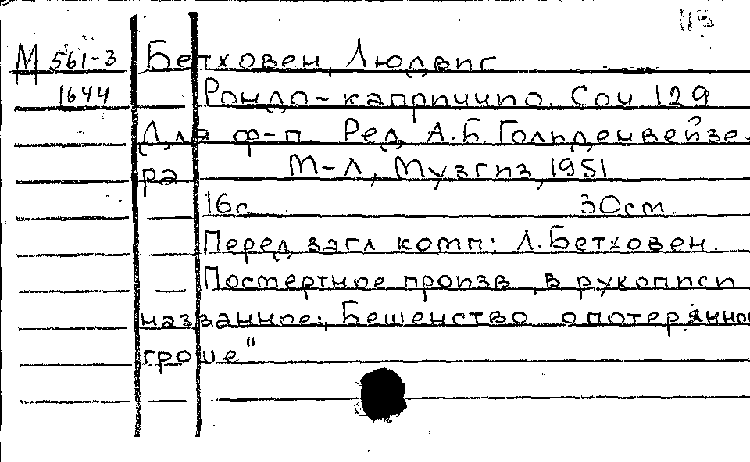 113
М 561-3 Бетховен, Людвиг
1644 Рондо-каприччио. Соч 129
Для ф-п. Ред. А.Б. Гольденвейзе-
ра М-Л, Музгиз, 1951
16с 30см
Перед загл комп: Л. Бетховен.
Посмертное произв, в рукописи
названное: „Бешенство о потерянном
гроше"